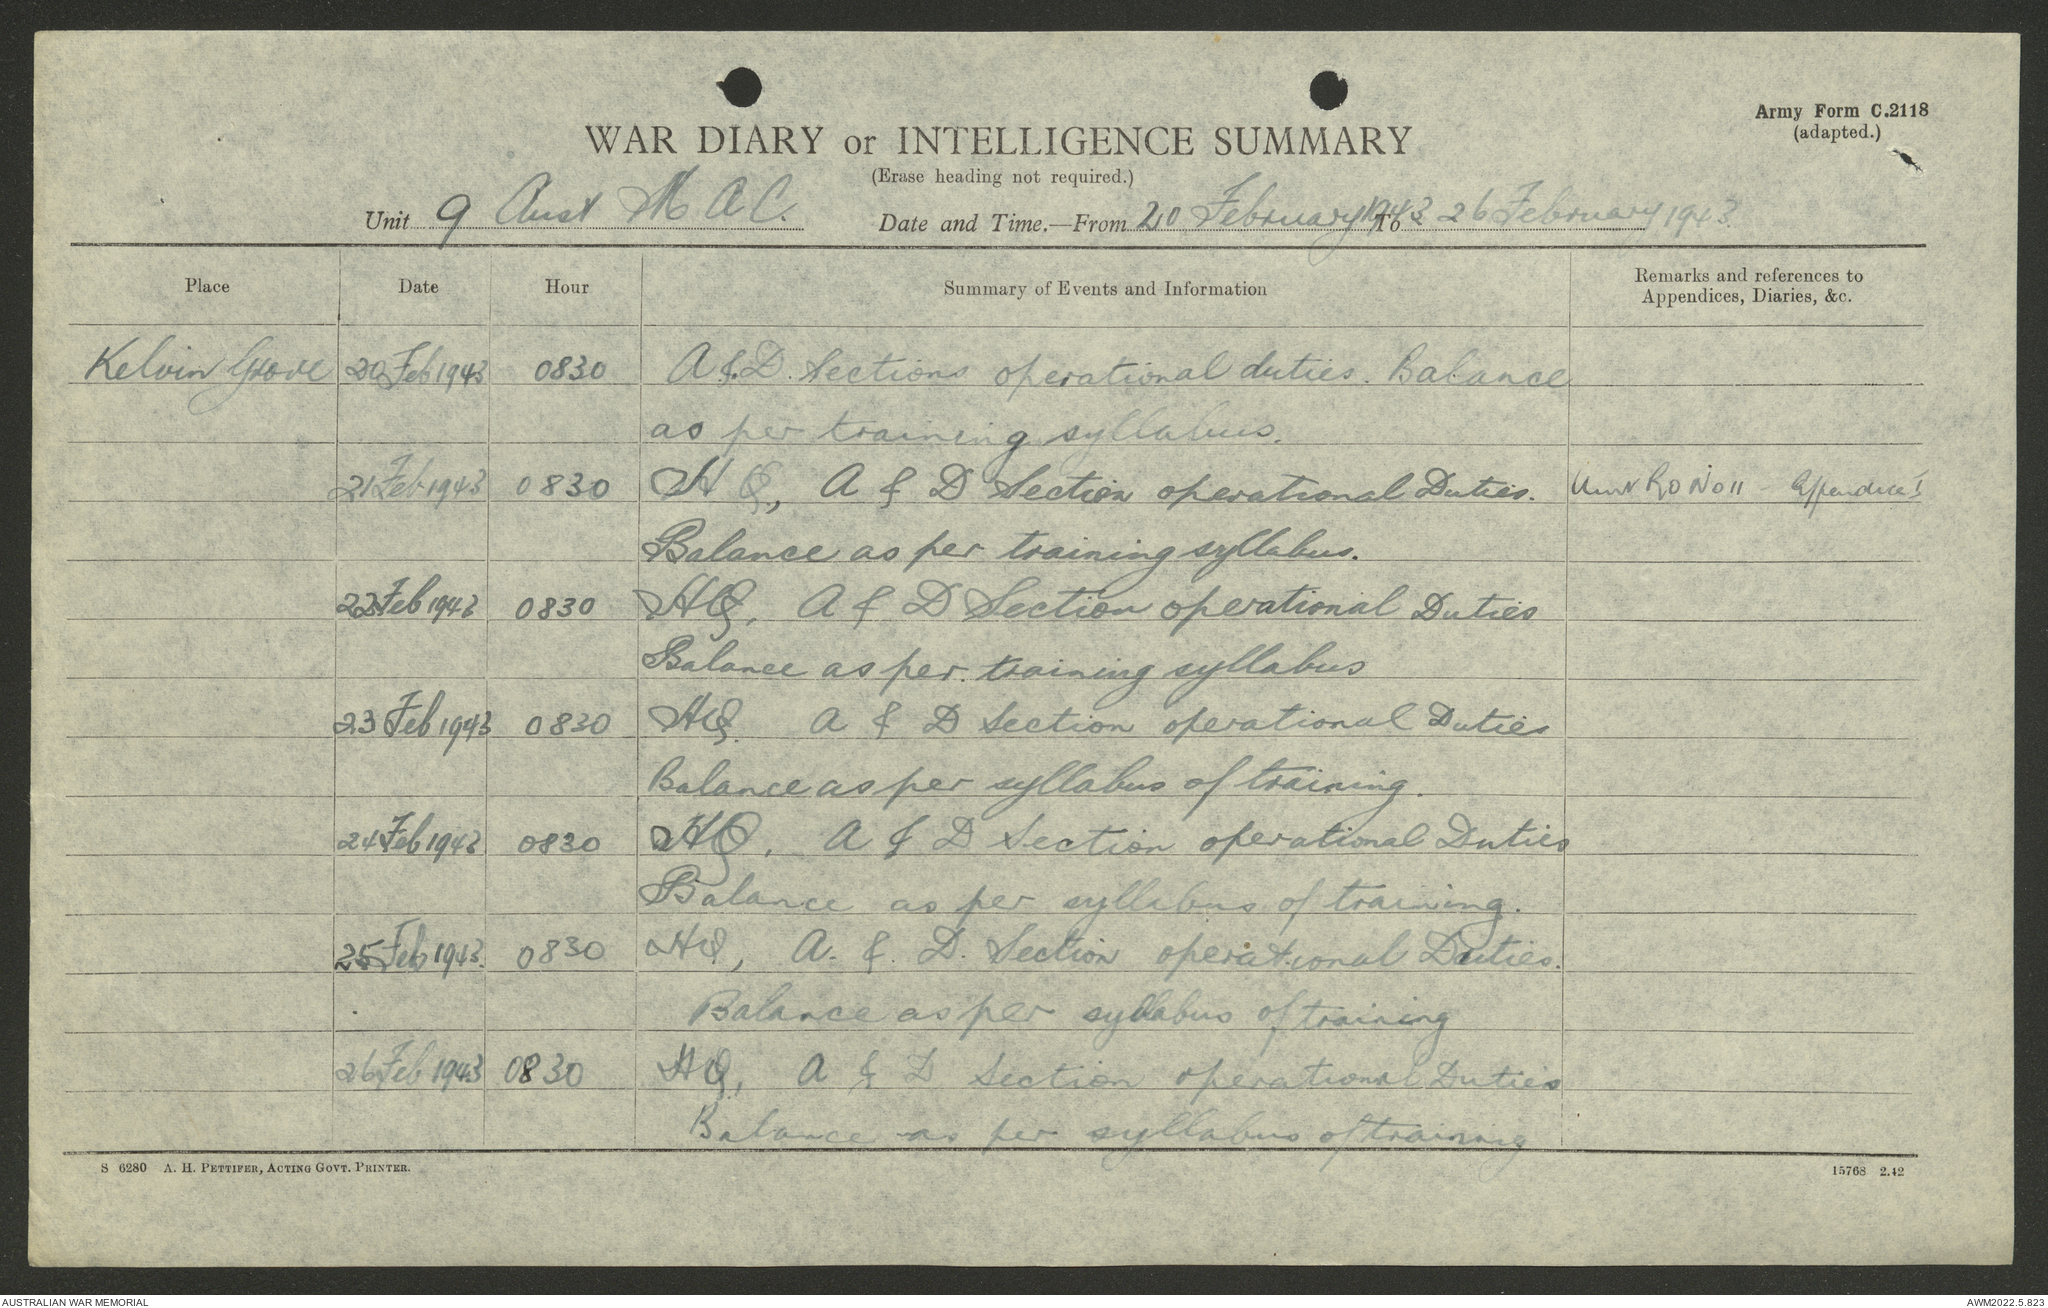 Army Form C.2118
(adapted.)
WAR DIARY or INTELLIGENCE SUMMARY
(Erase heading not required.)
Unit 9 Aust M A C. Date and Time.—From 20 February 1943 To 26 February 1943
Place Date Hour Summary of Events and Information Remarks and references to
Appendices, Diaries, &c.
Kelvin Grove 20 Feb 1943 0830 A & D. Sections operational duties. Balance
as per training syllabus.
21 Feb 1943 0830 H Q, A & D Section operational Duties. Unit RO No 11 - Appendice 1
Balance as per training syllabus.
22 Feb 1943 0830 HQ, A & D Section operational Duties
Balance as per training syllabus
23 Feb 1943 0830 HQ. A & D Section operational Duties
Balance as per syllabus of training.
24 Feb 1943 0830 HQ, A & D Section operational Duties
Balance as per syllabus of training.
25 Feb 1943. 0830 HQ, A. &. D. Section operational Duties.
Balance as per syllabus of training
26 Feb 1943 0830 HQ, A & D Section operational Duties
Balance as per syllabus of training
S 6280 A. H. PETTIFER, ACTING GOVT. PRINTER. 15768 2.42
AUSTRALIAN WAR MEMORIAL AWM2022.5.823